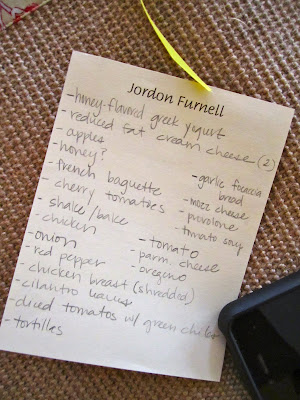 Jordon Furnell
-honey-flavored greek yogurt
-reduced fat cream cheese (2)
-apples
-honey?
-french baguette
-cherry tomatoes
-shake/bake
-chicken
-onion
-red pepper
-chicken breast (shredded)
-cilantro leaves
-diced tomatos w/ green chiles
-tortillas
-garlic focaccia
bread
-mozz cheese
-provolone
-tomato soup
-tomato
-parm. cheese
-oregano